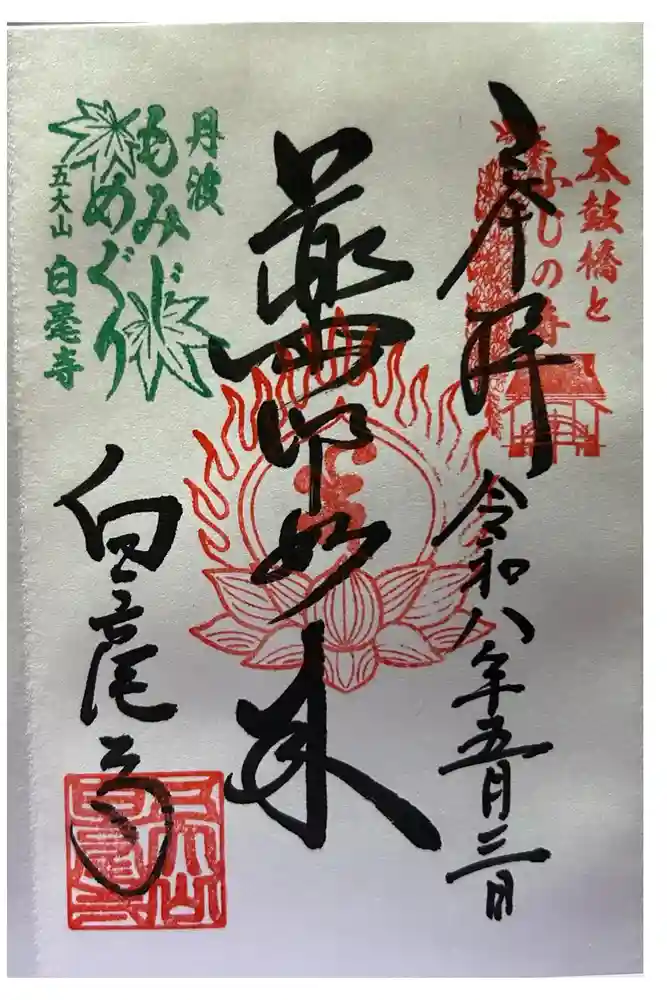 太鼓橋と
ふじの寺
奉拝
令和八年五月三日
薬師如来
丹波
もみじ
めぐり
五大山 白毫寺
白毫寺
五大山
白毫寺